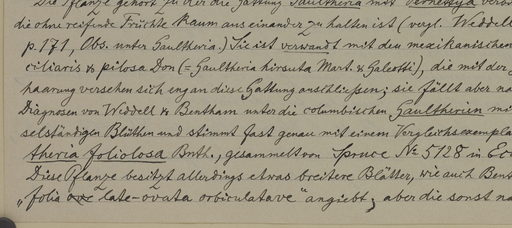 Die Pflanze gehört zu der die Gattung Gaultheria mit Pernettya
die ohne reifende Früchte kaum auseinander zu halten ist (vergl. Weddell
p. 171, Obs. unter Gaultheria.) Sie ist verwandt mit den mexikanischen
ciliaris & pilosa Don (= Gaultheria hirsuta Mart. & Galeotti), die mit der
haarung versehen sich eng an diese Gattung anschließen; sie fällt aber na
Diagnosen von Weddell & Bentham unter die columbischen Gaultherien mi
selständigen Blüthen und stimmt fast genau mit einem Vergleichsexempla
theria foliolosa Bnth., gesammelt von Spruce № 5128 in Ec
Diese Pflanze besitzt allerdings etwas breitere Blätter, wie auch Bent
„folia ove late-ovata orbiculatave" angiebt, aber die sonst na